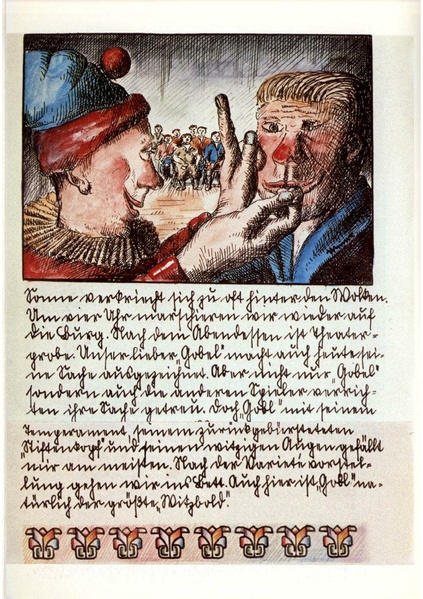 Sonne verkriecht sich zu oft hinter den Wolken.
Um vier Uhr marschieren wir wieder auf
die Burg. Nach dem Abendessen ist Theater-
probe. Unser lieber „Gobel" macht auch heute sei-
ne Sache ausgezeichnet. Aber nicht nur „Gobel"
sondern auch die anderen Spieler verrich-
ten ihre Sache getreu. Doch „Gobl" mit seinem
Temperament, seinem zurückgebürsteteten
„Stiftenkopf" und seinen witzigen Augen gefällt
mir am meisten. Nach der Varieté vorstel-
lung gehen wir ins Bett. Auch hier ist „Gobl" na-
türlich der größte „Witzbold".